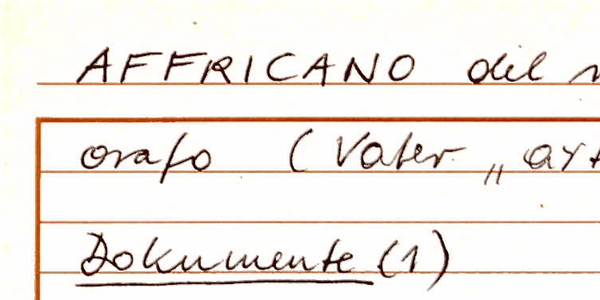 AFFRICANO del
orafo (Vater „
Dokumente (1)